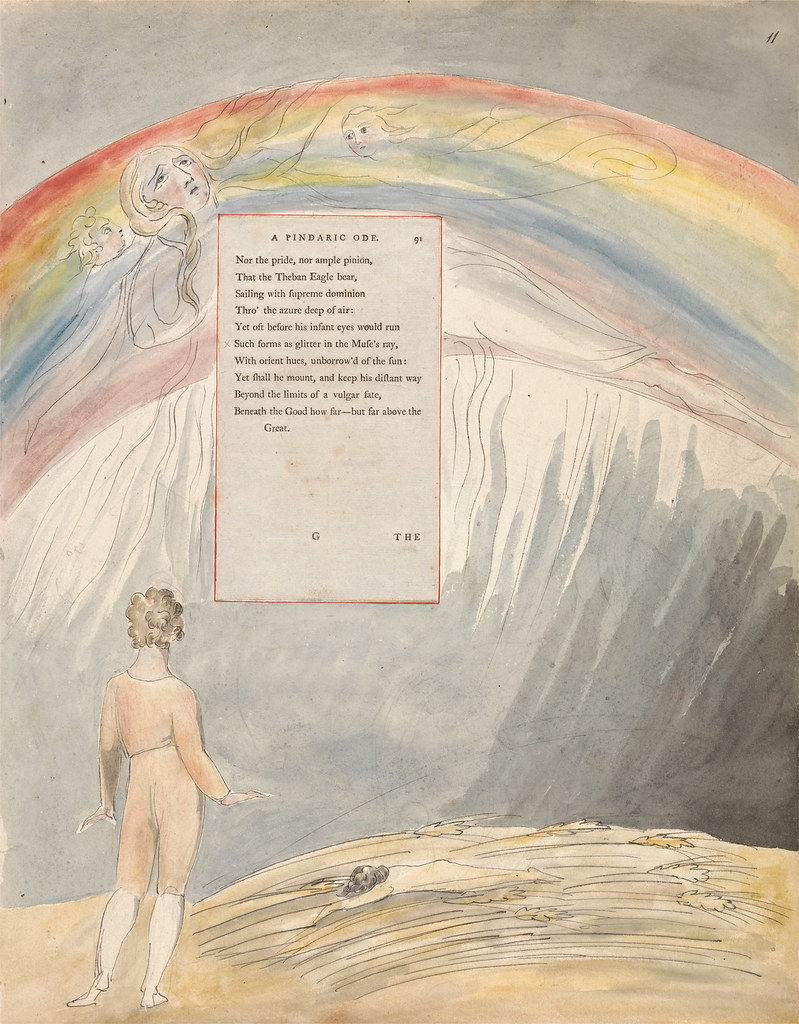 11
A PINDARIC ODE. 91
Nor the pride, nor ample pinion,
That the Theban Eagle bear,
Sailing with ſupreme dominion
Thro' the azure deep of air:
Yet oft before his infant eyes would run
Such forms as glitter in the Muſe's ray,
With orient hues, unborrow'd of the ſun:
Yet ſhall he mount, and keep his diſtant way
Beyond the limits of a vulgar fate,
Beneath the Good how far—but far above the
Great.
G THE